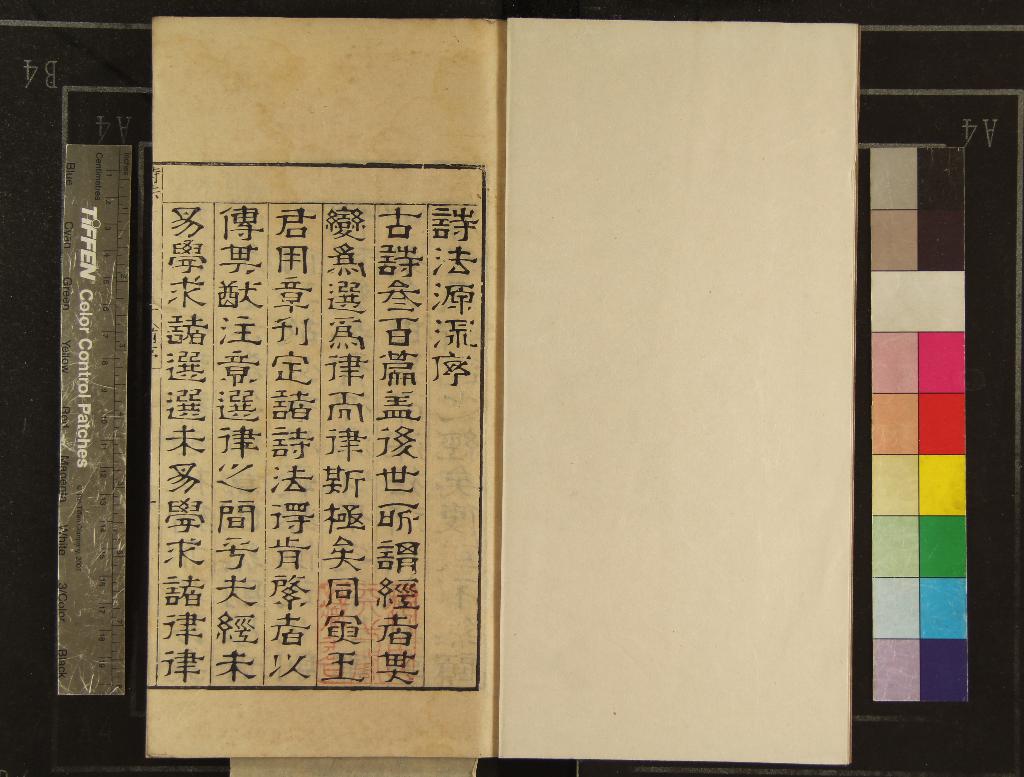 詩法源流序
古詩叄百篇盖後世所謂經者其
變爲選爲律而律斯極矣同寅王
君用章刊定諸詩法得肯綮者以
傳其猷注意選律之間乎夫經未
易學求諸選選未易學求諸律律
B4
A4
A4
Inches
Centimetres
TIFFEN Color Control Patches
Blue
Cyan
Green
Yellow
Red
Magenta
White
3/Color
Black